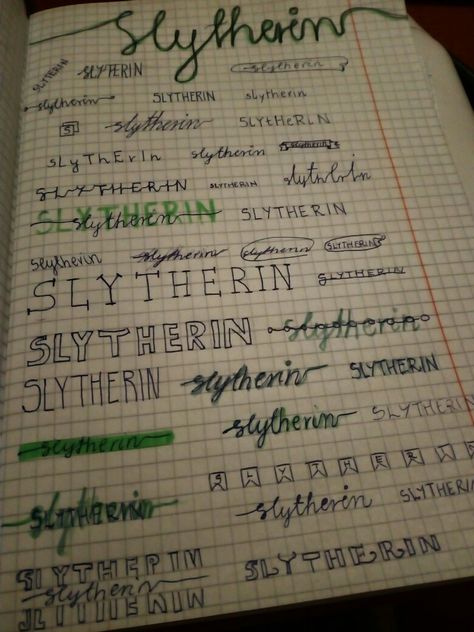 Slytherin
SLYTHERIN SLYTHERIN slytherin
slytherin SLYTHERIN slytherin
S slytherin SLYtHeRiN
sLyThErIn slytherin
SLYTHERIN SLYTHERIN
SLYTHERIN slytherin SLYTHERIN
slytherin slytherin slytherin SLYTHERIN
SLYTHERIN SLYTHERIN
SLYTHERIN slytherin
SLYTHERIN slytherin SLYTHERIN
slytherin slytherin SLYTHERIN
S L Y T H E R I
slytherin SLYTHERIN slytherin SLYTHERIN
SLYTHERIN SLYTHERIN
slytherin